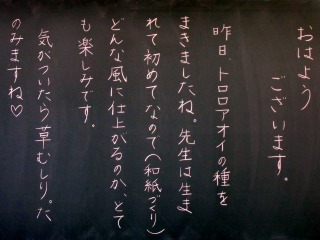 おはよう
ございます。
昨日、トロロアオイの種を
まきましたね。先生は生ま
れて初めてなので(和紙づくり)
どんな風に仕上がるのか、とて
も楽しみです。
気がついたら草むしり。た
のみますね♡